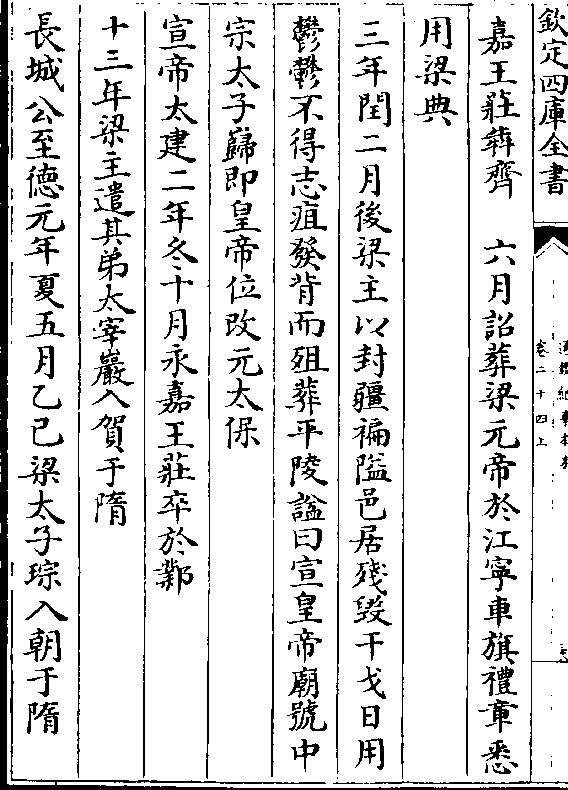 欽定四庫全書
卷二十四上
嘉王莊犇齊 六月詔葬梁元帝於江寧車旗禮章悉
用梁典
三年閏二月後梁主以封疆褊隘邑居殘毀干戈日用
鬱鬱不得志疽發背而殂葬平陵諡曰宣皇帝廟號中
宗太子巋即皇帝位改元太保
宣帝太建二年冬十月永嘉王莊卒於鄴
十三年梁主遣其弟太宰巖入賀于隋
長城公至德元年夏五月乙巳梁太子琮入朝于隋